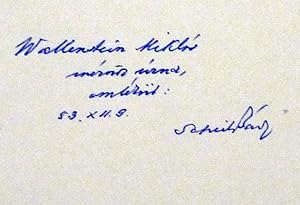 Wallenstein Miklós
mérnök úrnak,
emlékül:
53. XII. 9.